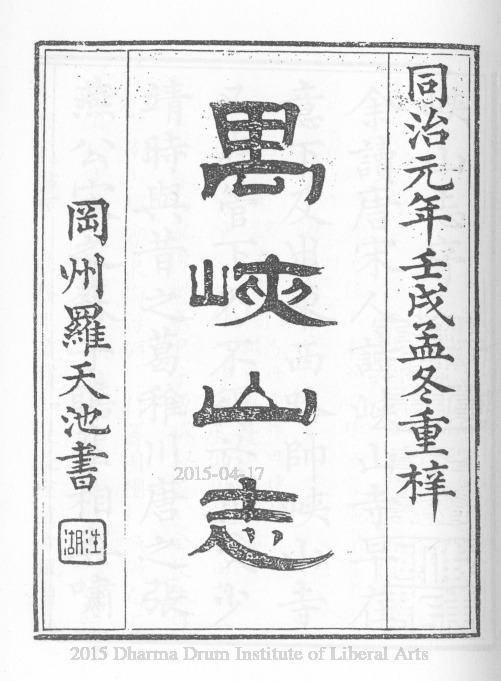 同治元年壬戌孟冬重梓
禺峽山志
岡州羅天池書
2015-04-17
2015 Dharma Drum Institute of Liberal Arts